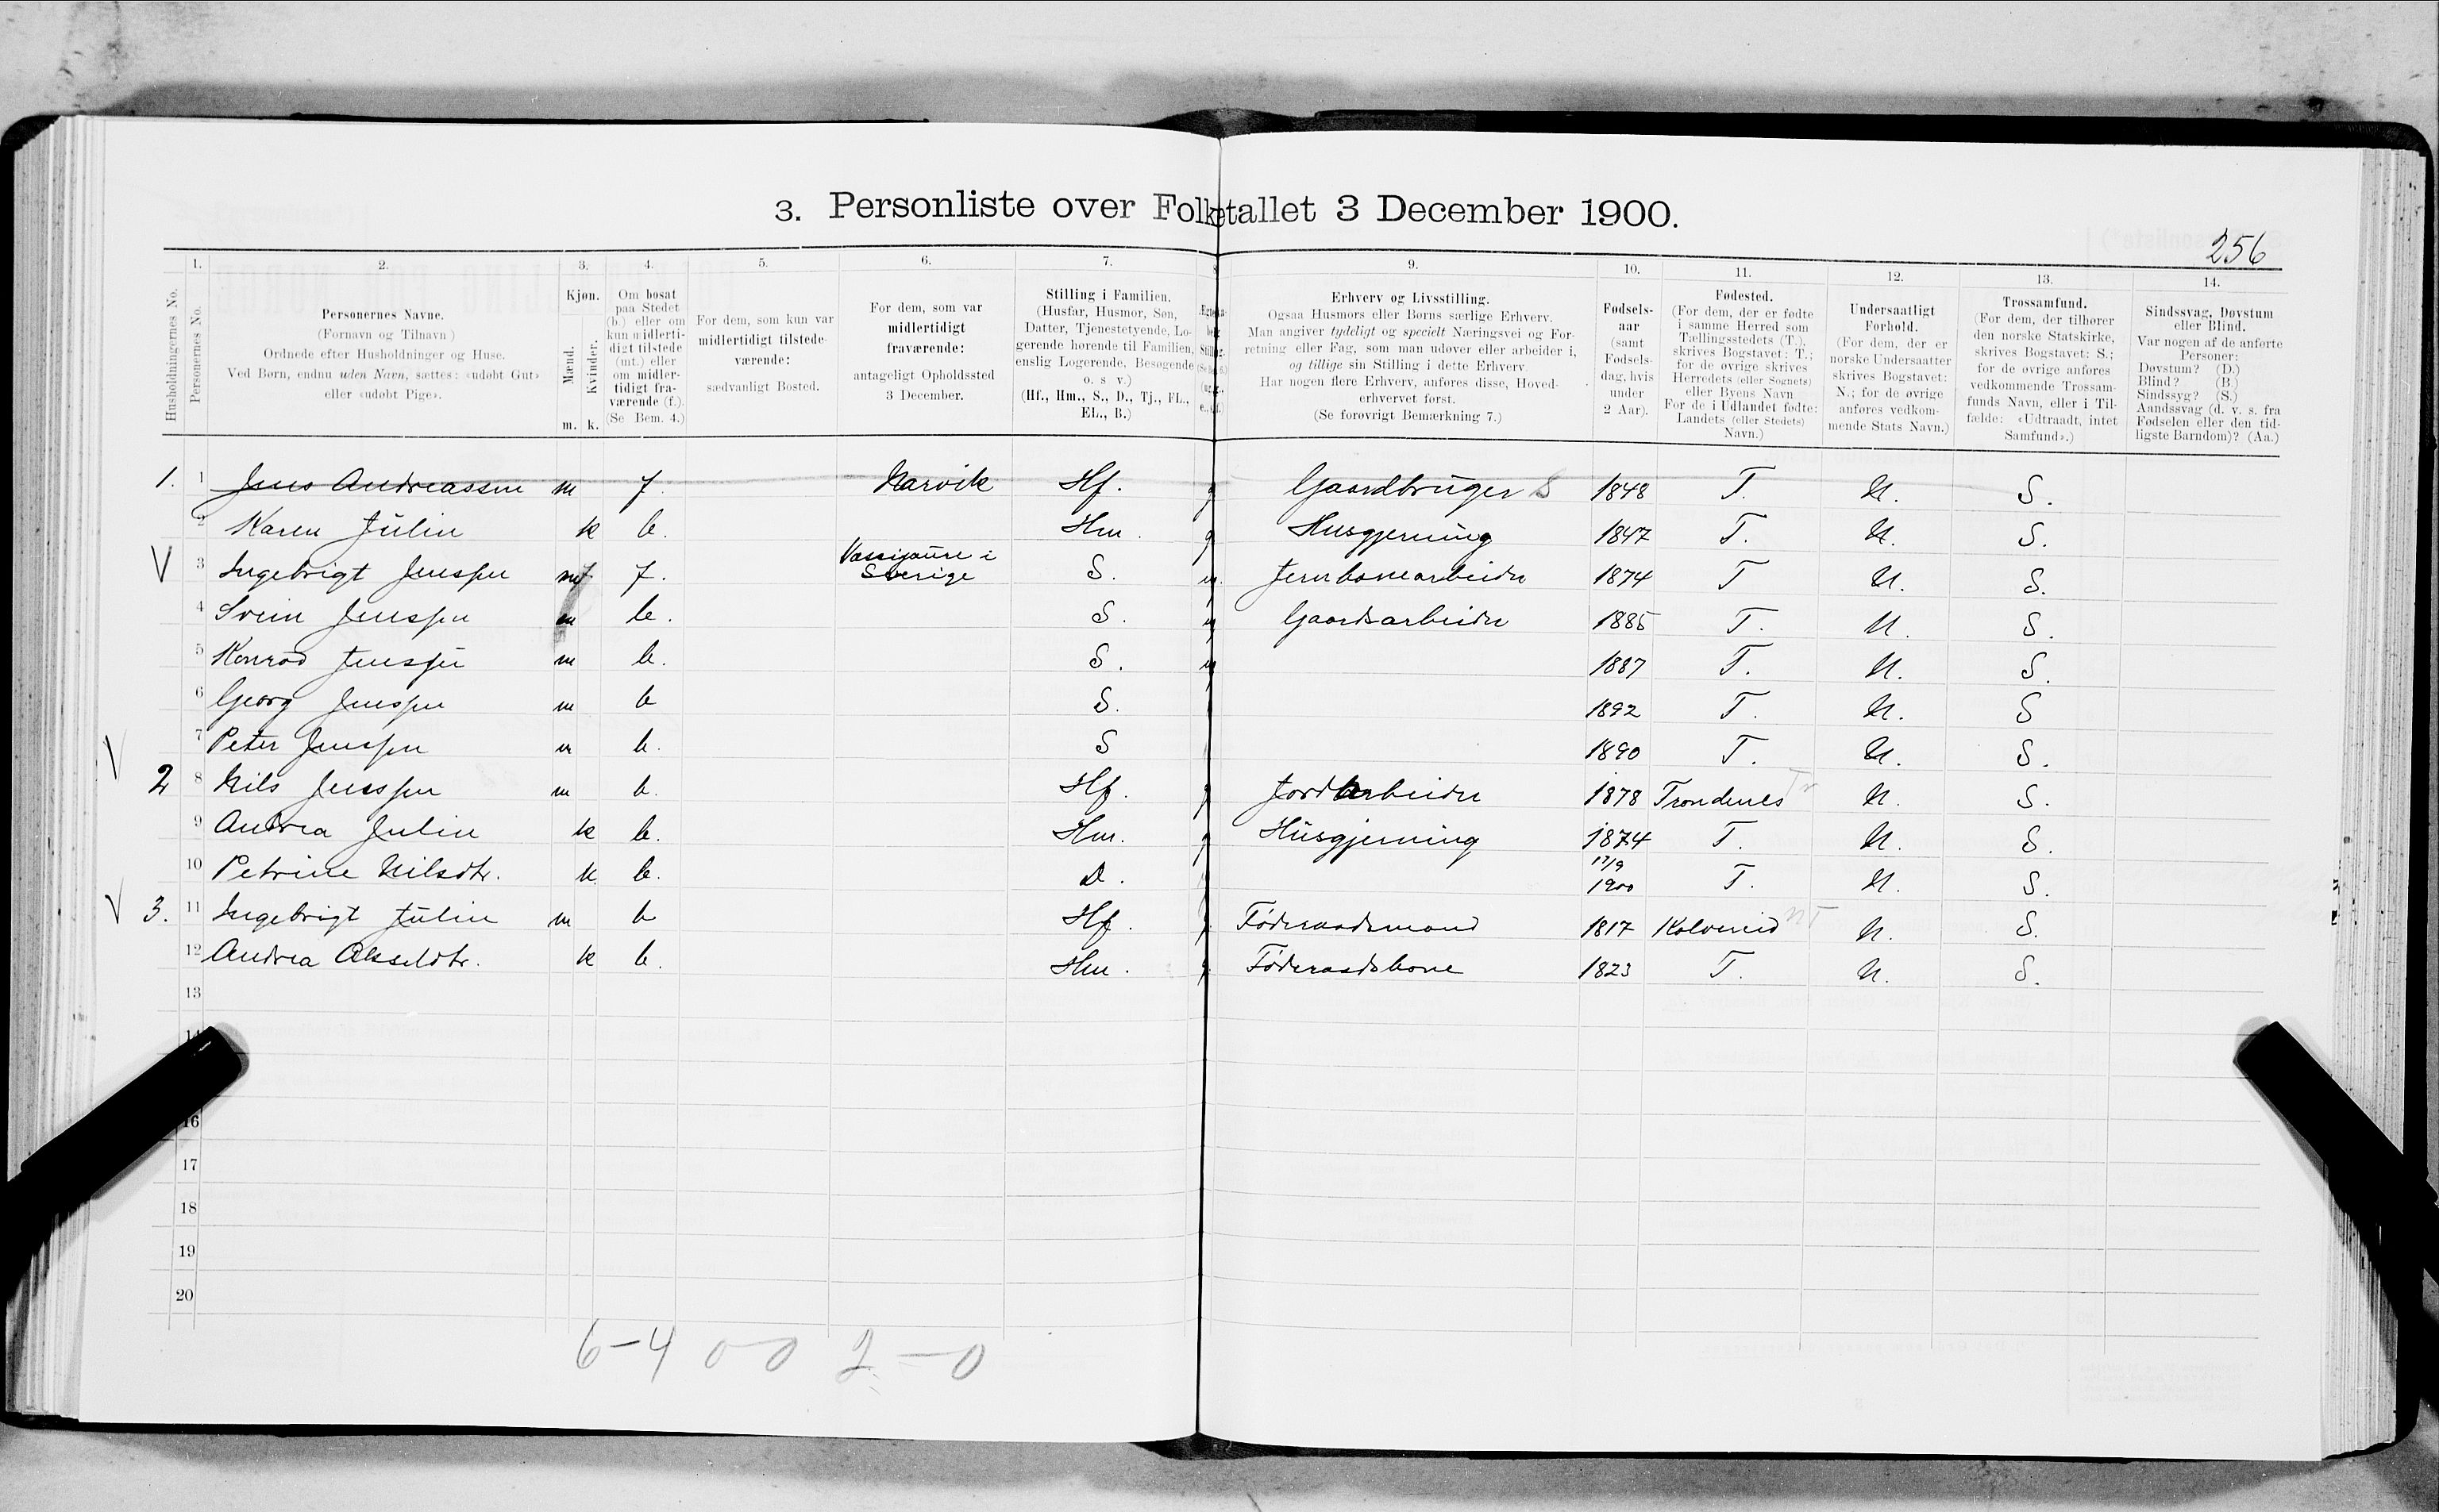 3. Personliste over Folketallet 3 December 1900.
256
1. 2. 3. 4. 5. 6. 7. 8 9. 10. 11. 12. 13. 14.
Husholdningernes No.
Personernes No.
Personernes Navne.
(Fornavn og Tilnavn)
Ordnede efter Husholdninger og Huse.
Ved Børn, endnu uden Navn, sættes: «udøbt Gut»
eller «udøbt Pige».
Kjøn.
Mænd.
Kvinder.
m. k.
Om bosat
paa Stedet
(b.) eller om
kun midlerti-
digt tilstede
(mt.) eller
om midler-
tidigt fra-
værende (f.)
(Se Bem. 4.)
For dem, som kun var
midlertidigt tilstede-
værende:
sædvanligt Bosted.
For dem, som var
midlertidigt
fraværende:
antageligt Opholdssted
3 December.
Stilling i Familien.
(Husfar, Husmor, Søn,
Datter, Tjenestetyende, Lo-
gerende hørende til Familien,
enslig Logerende, Besøgende
o. s v.)
(Hf., Hm., S., D., Tj., FL.,
EL., B.)
Erhverv og Livsstilling.
Ogsaa Husmors eller Børns særlige Erhverv.
Man angiver tydeligt og specielt Næringsvei og For-
retning eller Fag, som man udøver eller arbeider i,
og tillige sin Stilling i dette Erhverv.
Har nogen flere Erhverv, anføres disse, Hoved-
erhvervet først.
(Se forøvrigt Bemærkning 7.)
Fødsels-
aar
(samt
Fødsels-
dag, hvis
under
2 Aar).
Fødested.
(For dem, der er fødte
i samme Herred som
Tællingsstedets (T.),
skrives Bogstavet: T.;
for de øvrige skrives
Herredets (eller Sognets)
eller Byens Navn
For de i Udlandet fødte:
Landets (eller Stedets)
Navn.)
Undersaatligt
Forhold.
(For dem, der er
norske Undersaatter
skrives Bogstavet:
N.; for de øvrige
anføres vedkom-
mende Stats Navn.)
Trossamfund.
(For dem, der tilhører
den norske Statskirke,
skrives Bogstavet: S.;
for de øvrige anføres
vedkommende Trossam-
funds Navn, eller i Til-
fælde: «Udtraadt, intet
Samfund».)
Sindssvag, Døvstum
eller Blind.
Var nogen af de anførte
Personer:
Døvstum? (D.)
Blind? (B.)
Sindssyg? (S.)
Aandssvag (d. v. s. fra
Fødselen eller den tid-
ligste Barndom)? (Aa.)
1. 1 Jens Andreassen m f. Narvik Hf. g Gaardbruger S 1848 T. N. S.
2 Karen Julin k b. Hm. g Husgjerning 1847 T. N. S.
V 3 Ingebrigt Jenssen m f. Vassijaure i Sverige S. u. Jernbanearbeider 1874 T N. S.
4 Svein Jenssen m b. S. u Gaardsarbeider 1885 T. N. S.
5 Konrad Jenssen m b. S. u 1887 T. N. S.
6 Georg Jenssen m b S. 1892 T. N. S
7 Peter Jenssen m b. S 1890 T. N. S.
V 2 8 Nils Jenssen m b. Hf. g Jordarbeider 1878 Trondenes Tr N. S.
9 Andrea Julin k b. Hm. g Husgjerning 1874 T. N. S.
10 Petrine Nilsdtr. k b. D. 17/9 1900 T. N. S.
V 3. 11 Ingebrigt Julin m b Hf. g. Føderaadsmand 1817 Kolvereid NT N. S.
12 Andrea Akseldtr. k b. Hm. g. Føderaadskone 1823 T. N. S.
13
14
16
17
18
19
20
6-4 0-0 2-0